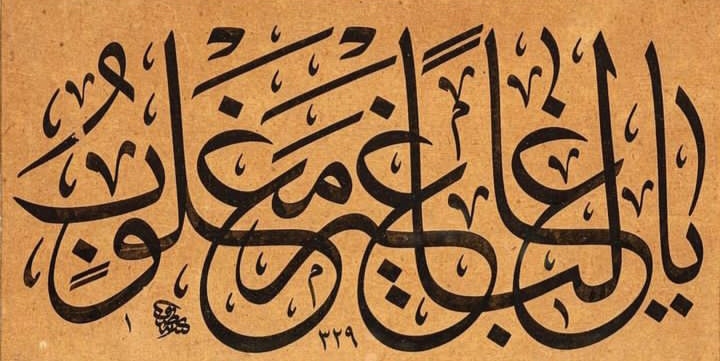 يا غالباً غير مغلوب
٣٢٩